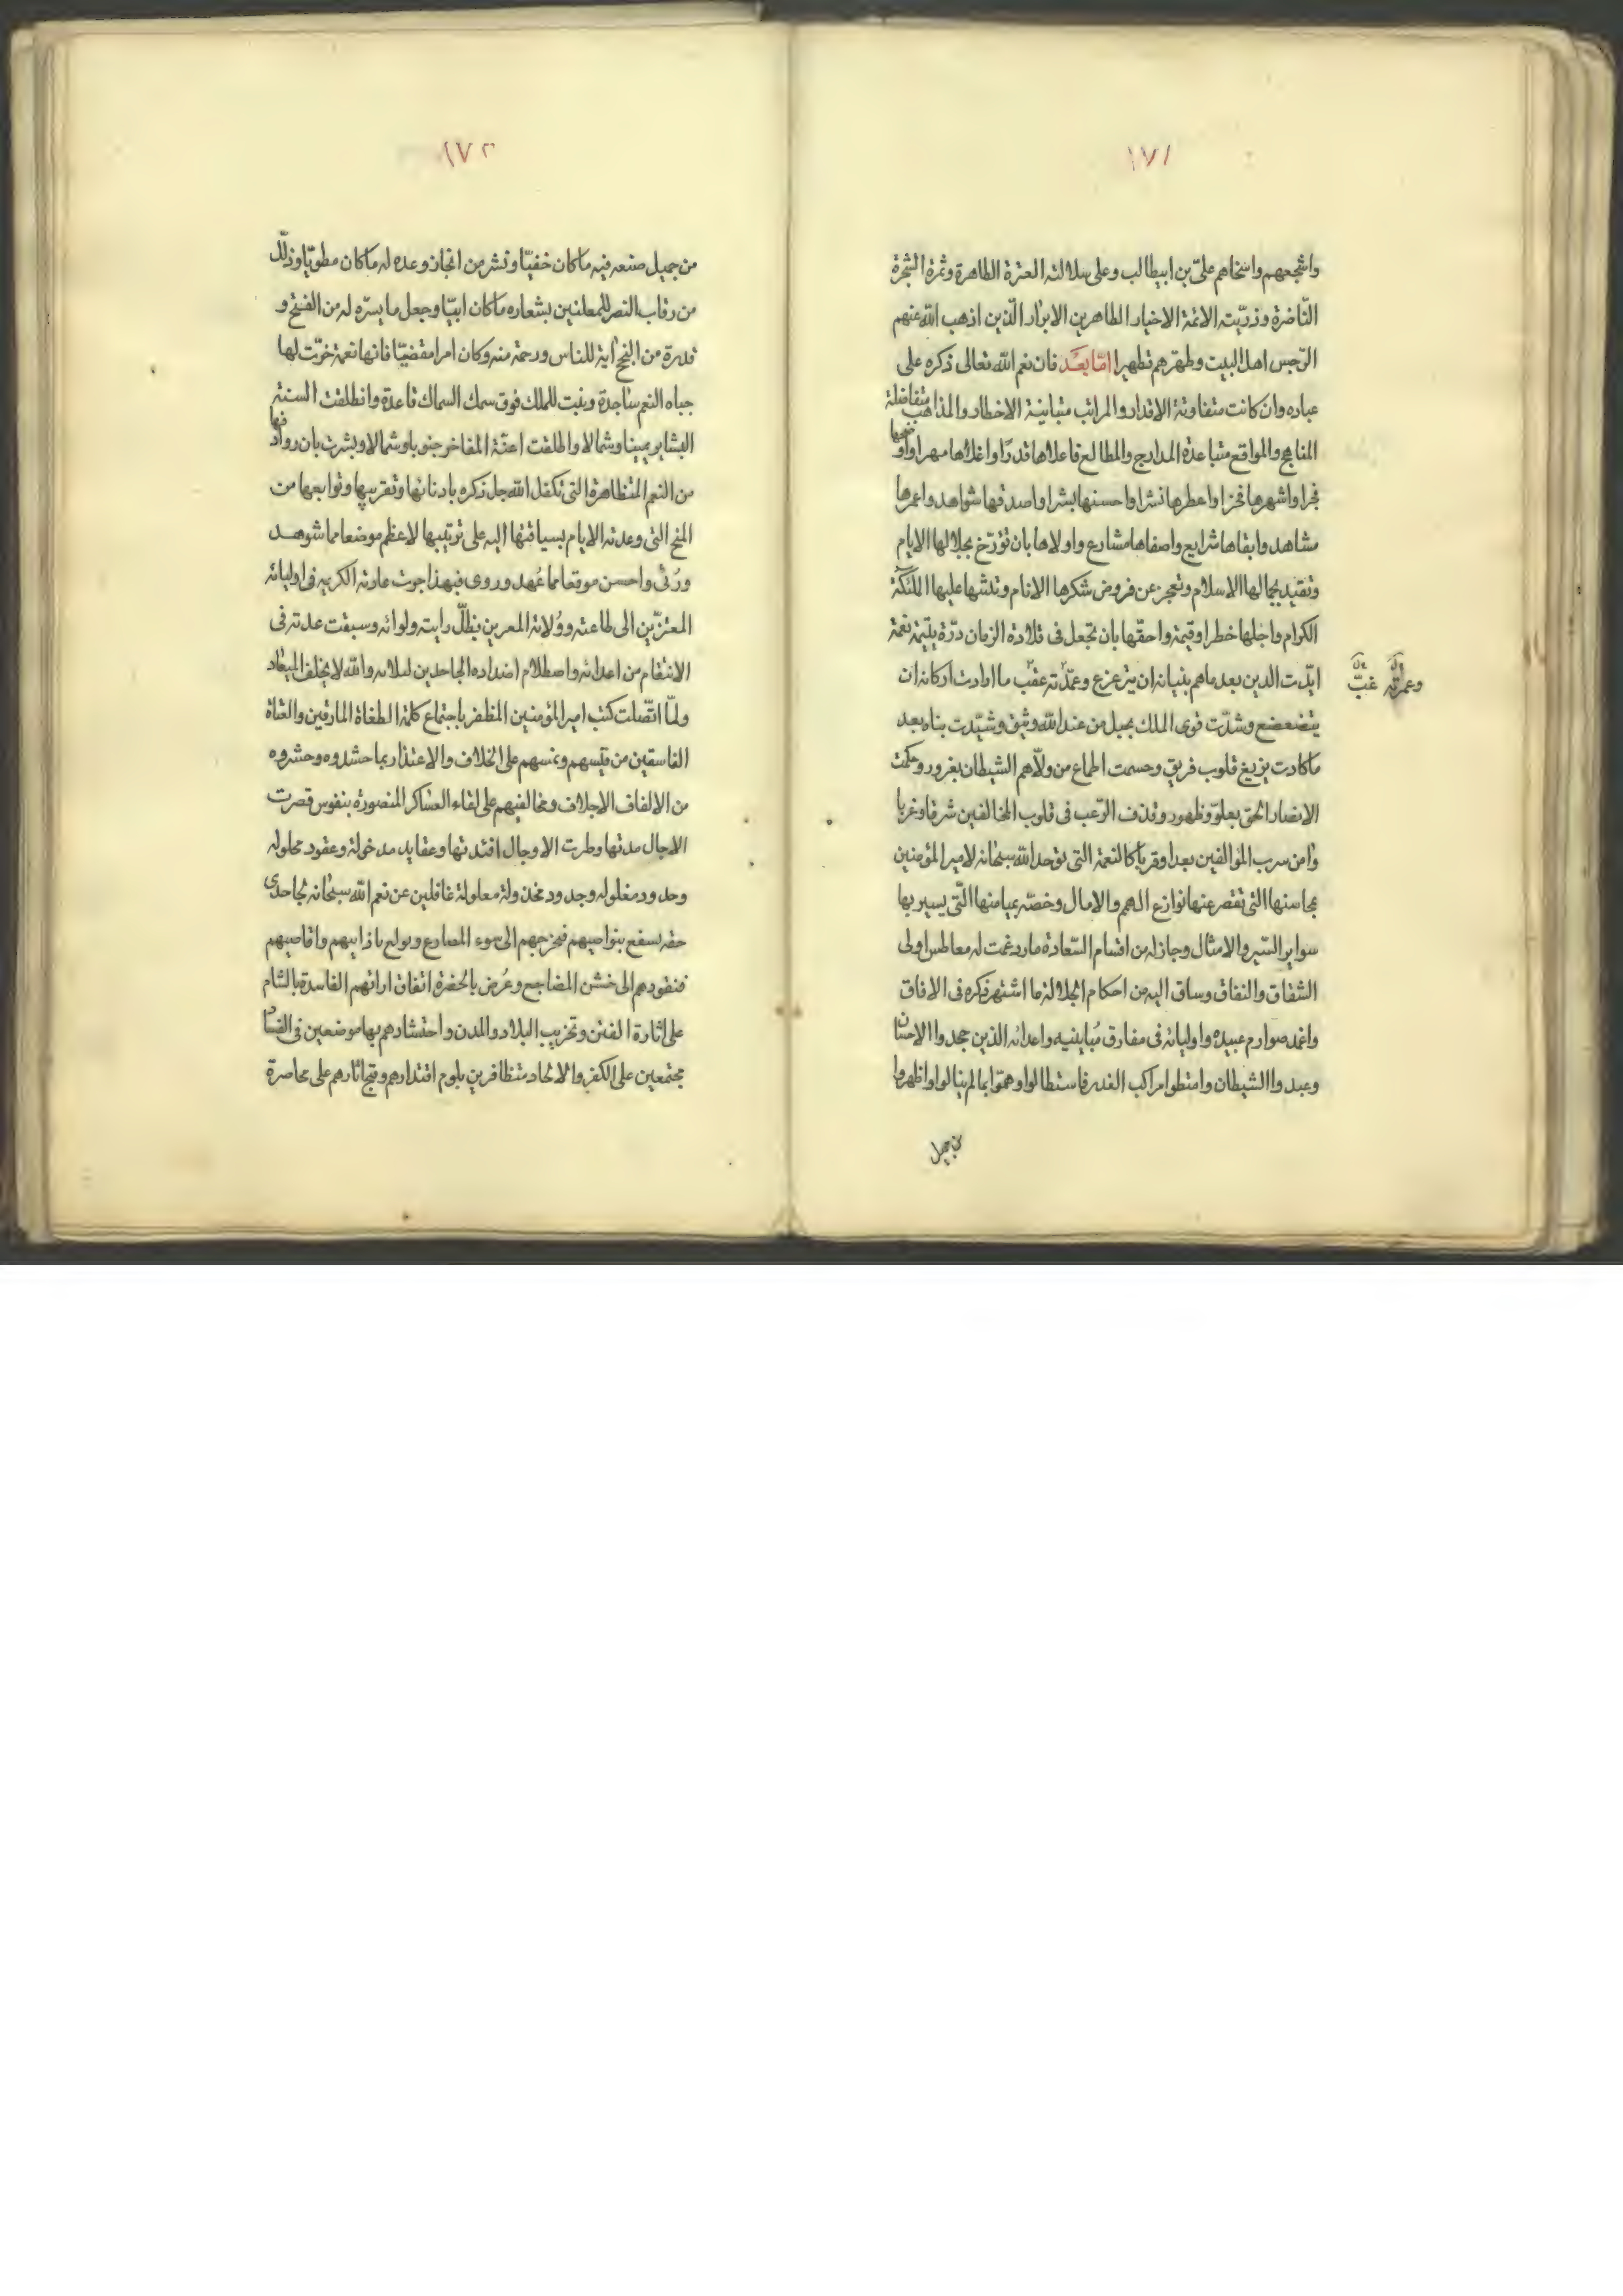 ١٧١
واشجعهم واسخاهم علىّ بن ابيطالب وعلى سلالته العترة الطاهرة وثمرة الشجرة
النّاضرة وذرّيته الائمة الاخيار الطاهرين الابرار الّذين اذهب الله عنهم
الرّجس اهل البيت وطهّرهم تطهيرا امّا بعد فان نعم الله تعالى ذكره على
عباده وان كانت متفاوتة الاقدار والمراتب متباينة الاخطار والمذاهب متفاضلة
المناهج والمواقع متباعدة المدارج والمطالع فاعلاها قدرًا واغلاها مهرا واوضحها
فجرا واشهرها فخرا واعطرها نشرا واحسنها بشرا واصدقها شواهد واعمرها
مشاهد وابقاها شرايع واصفاها مشارع واولاها بان تؤرّخ بجلالها الايام
وتقيد بجمالها الاسلام وتعجز عن فروض شكرها الانام وتدشها عليها الملئكة
الكرام واجلها خطرا وقيمة واحقّها بان تجعل فى قلادة الزمان درّة يتيمة نعمة
ايّدت الدين بعد ماهم بنيانه ان يتزعزع وعمّدته عقب ما ارادت اركانه ان
وعمرته غبّ
يتضعضع وشدّت قوى الملك بحبل من عند الله وثيق وشيّدت بناه بعد
ماكادت يزيغ قلوب فريق وحسمت اطماع من ولّاهم الشيطان بغرور وحكمت
الانصار الحق بعلوّ وظهور وقذف الرّعب فى قلوب المخالفين شرقا وغربا
وامن سرب المؤالفين بعدا وقربا كالنعمة التى توحد الله سبحانه لامير المؤمنين
بمحاسنها التى تقصر عنها نوازع الهمم والامال وخصّه بميامنها الّتى يسير بها
سواير السّير والامثال وحازله من اقسام السّعادة مارغمت له معاطس اولى
الشقاق والنفاق وساق اليه من احكام الجلالة ما اشتهر ذكره فى الافاق
واغمد صوارم عبيده واوليائه فى مفارق مُباينيه واعدائه الذين جحدوا الاحسان
وعبدوا الشيطان وامتطوا مراكب الغدر فاستطالوا وهمّوا بما لم ينالوا واظهروا
من جميل
١٧٢
من جميل صنعه فيه ماكان خفيّا ونشر من انجاز وعده له ماكان مطويّا وذلّل
من رقاب النصر للمعلنين بشعاره ماكان ابيّا وجعل ما يسّره له من الفتح و
قدرة من النجح آية للناس ورحمة منه وكان امرا مقضيّا فانها نعمة خرّت لها
جباه النعم ساجدة وبنت للملك فوق سمك السماك قاعدة وانطلقت السنة
البشاير يمينا وشمالا واطلقت اعنّة المفاخر جنوبا وشمالا وبشرت بان روادفها
من النعم المتظاهرة التى تكفل الله جل ذكره بادنائها وتقريبها وتوابعها من
المنح التى وعدته الايام بسياقتها اليه على ترتيبها لاعظم موضعا مما شوهد
ورُئى واحسن موقعا مما عُهد وروى فبهذا جرت عادته الكريمه فى اوليائه
المعتزّين الى طاعته وولاته المعرين بظلّ رايته ولوائه وسبقت عدته فى
الانتقام من اعدائه واصطلام اضداده الجاحدين لبلائه والله لا يخلف الميعاد
ولمّا اتّصلت كتب امير المؤمنين المظفر باجتماع كلمة الطغاة المارقين والعتاة
الفاسقين من قيسهم ويمنهم على الخلاف والاعتذار بما حشدوه وحشروه
من الالفاف الاجلاف ومخالفيهم على لقاء العساكر المنصورة بنفوس قصرت
الاجال مدتها وطرت الاوجال افئدتها وعقايد مدخولة وعقود محلوله
وحدود مغلوله وجدود مخذولة معلولة غافلين عن نعم الله سبحانه لجاحدى
حقه يسفع بنواصيهم فيخرجهم الى سوء المصارع ويولع باذانيهم واقاصيهم
فنقودهم الى خشن المضاجع وعُرض بالحضرة اتفاق ارائهم الفاسدة بالشام
على اثارة الفتن وتخريب البلاد والمدن واحتشادهم بها موضعين فى الفساد
مجتمعين على الكفر والالحاد متظافرين بلوم اقتدارهم وقبح اثارهم على محاصرة